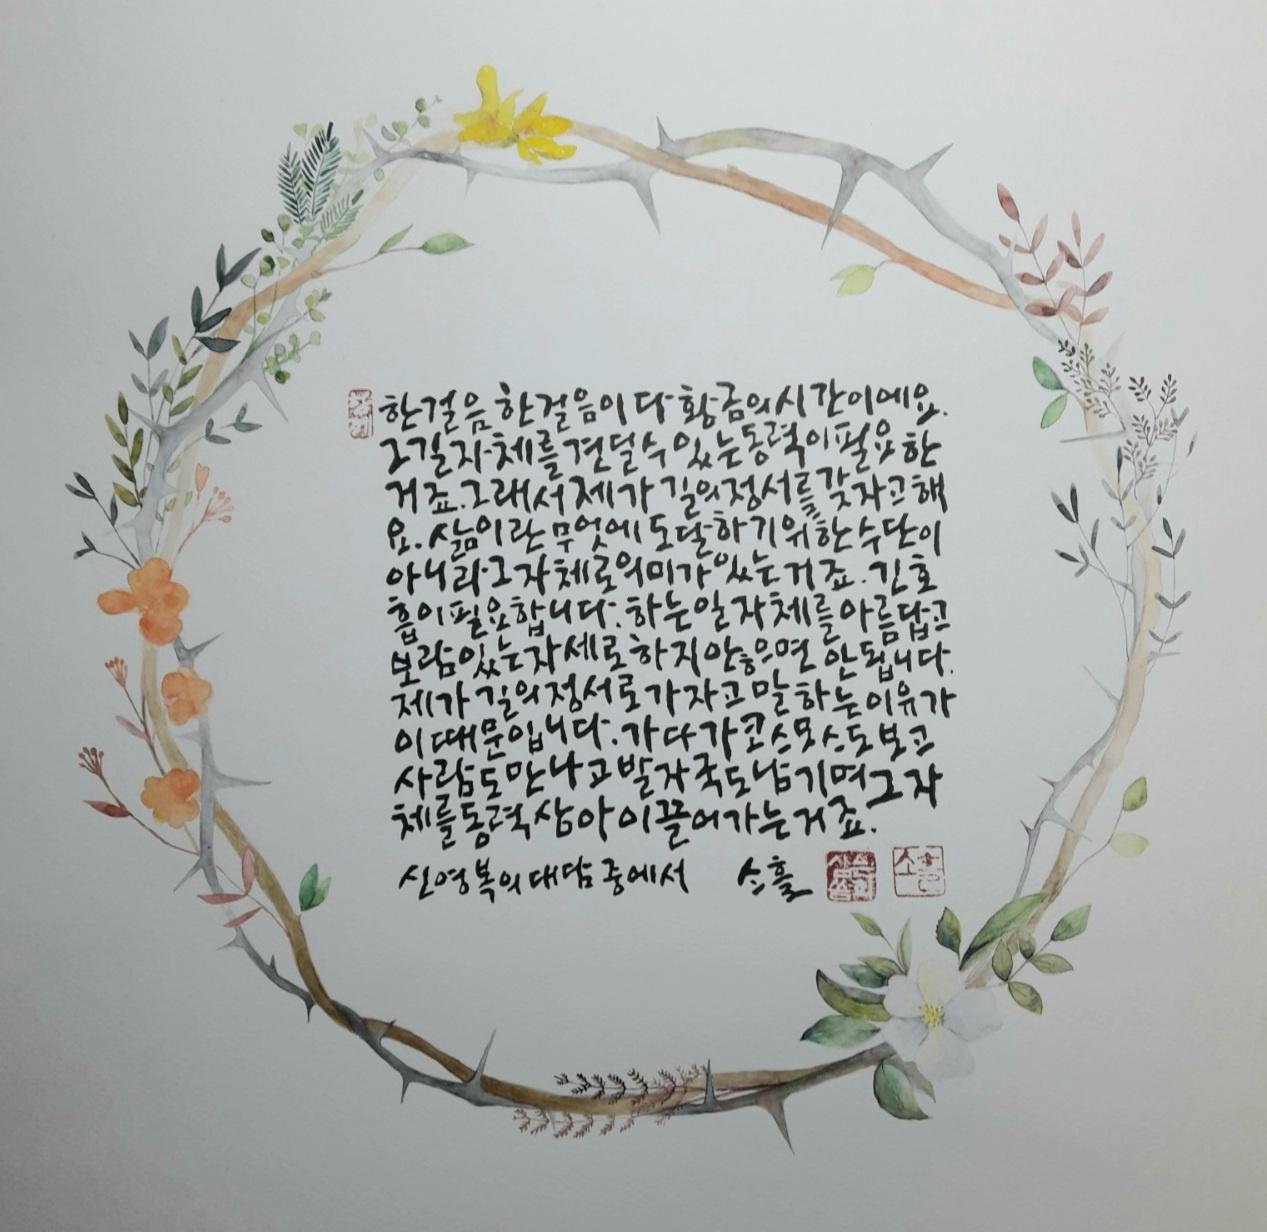 한걸음 한걸음이 다 황금의 시간이에요.
그 길 자체를 견딜 수 있는 동력이 필요한
거죠. 그래서 제가 길의 정서를 갖자고 해
요. 삶이란 무엇에 도달하기 위한 수단이
아니라 그 자체로 의미가 있는 거죠. 긴 호
흡이 필요합니다. 하는 일 자체를 아름답고
보람있는 자세로 하지 않으면 안 됩니다.
제가 길의 정서로 가자고 말하는 이유가
이 때문입니다. 가다가 코스모스도 보고
사람도 만나고 발자국도 남기며 그 자
체를 동력 삼아 이끌어가는 거죠.
신영복의 대담 중에서